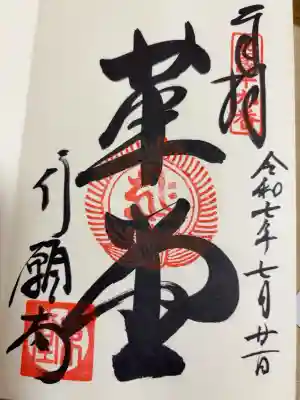 奉拝
令和七年七月廿一日
革堂
行願寺